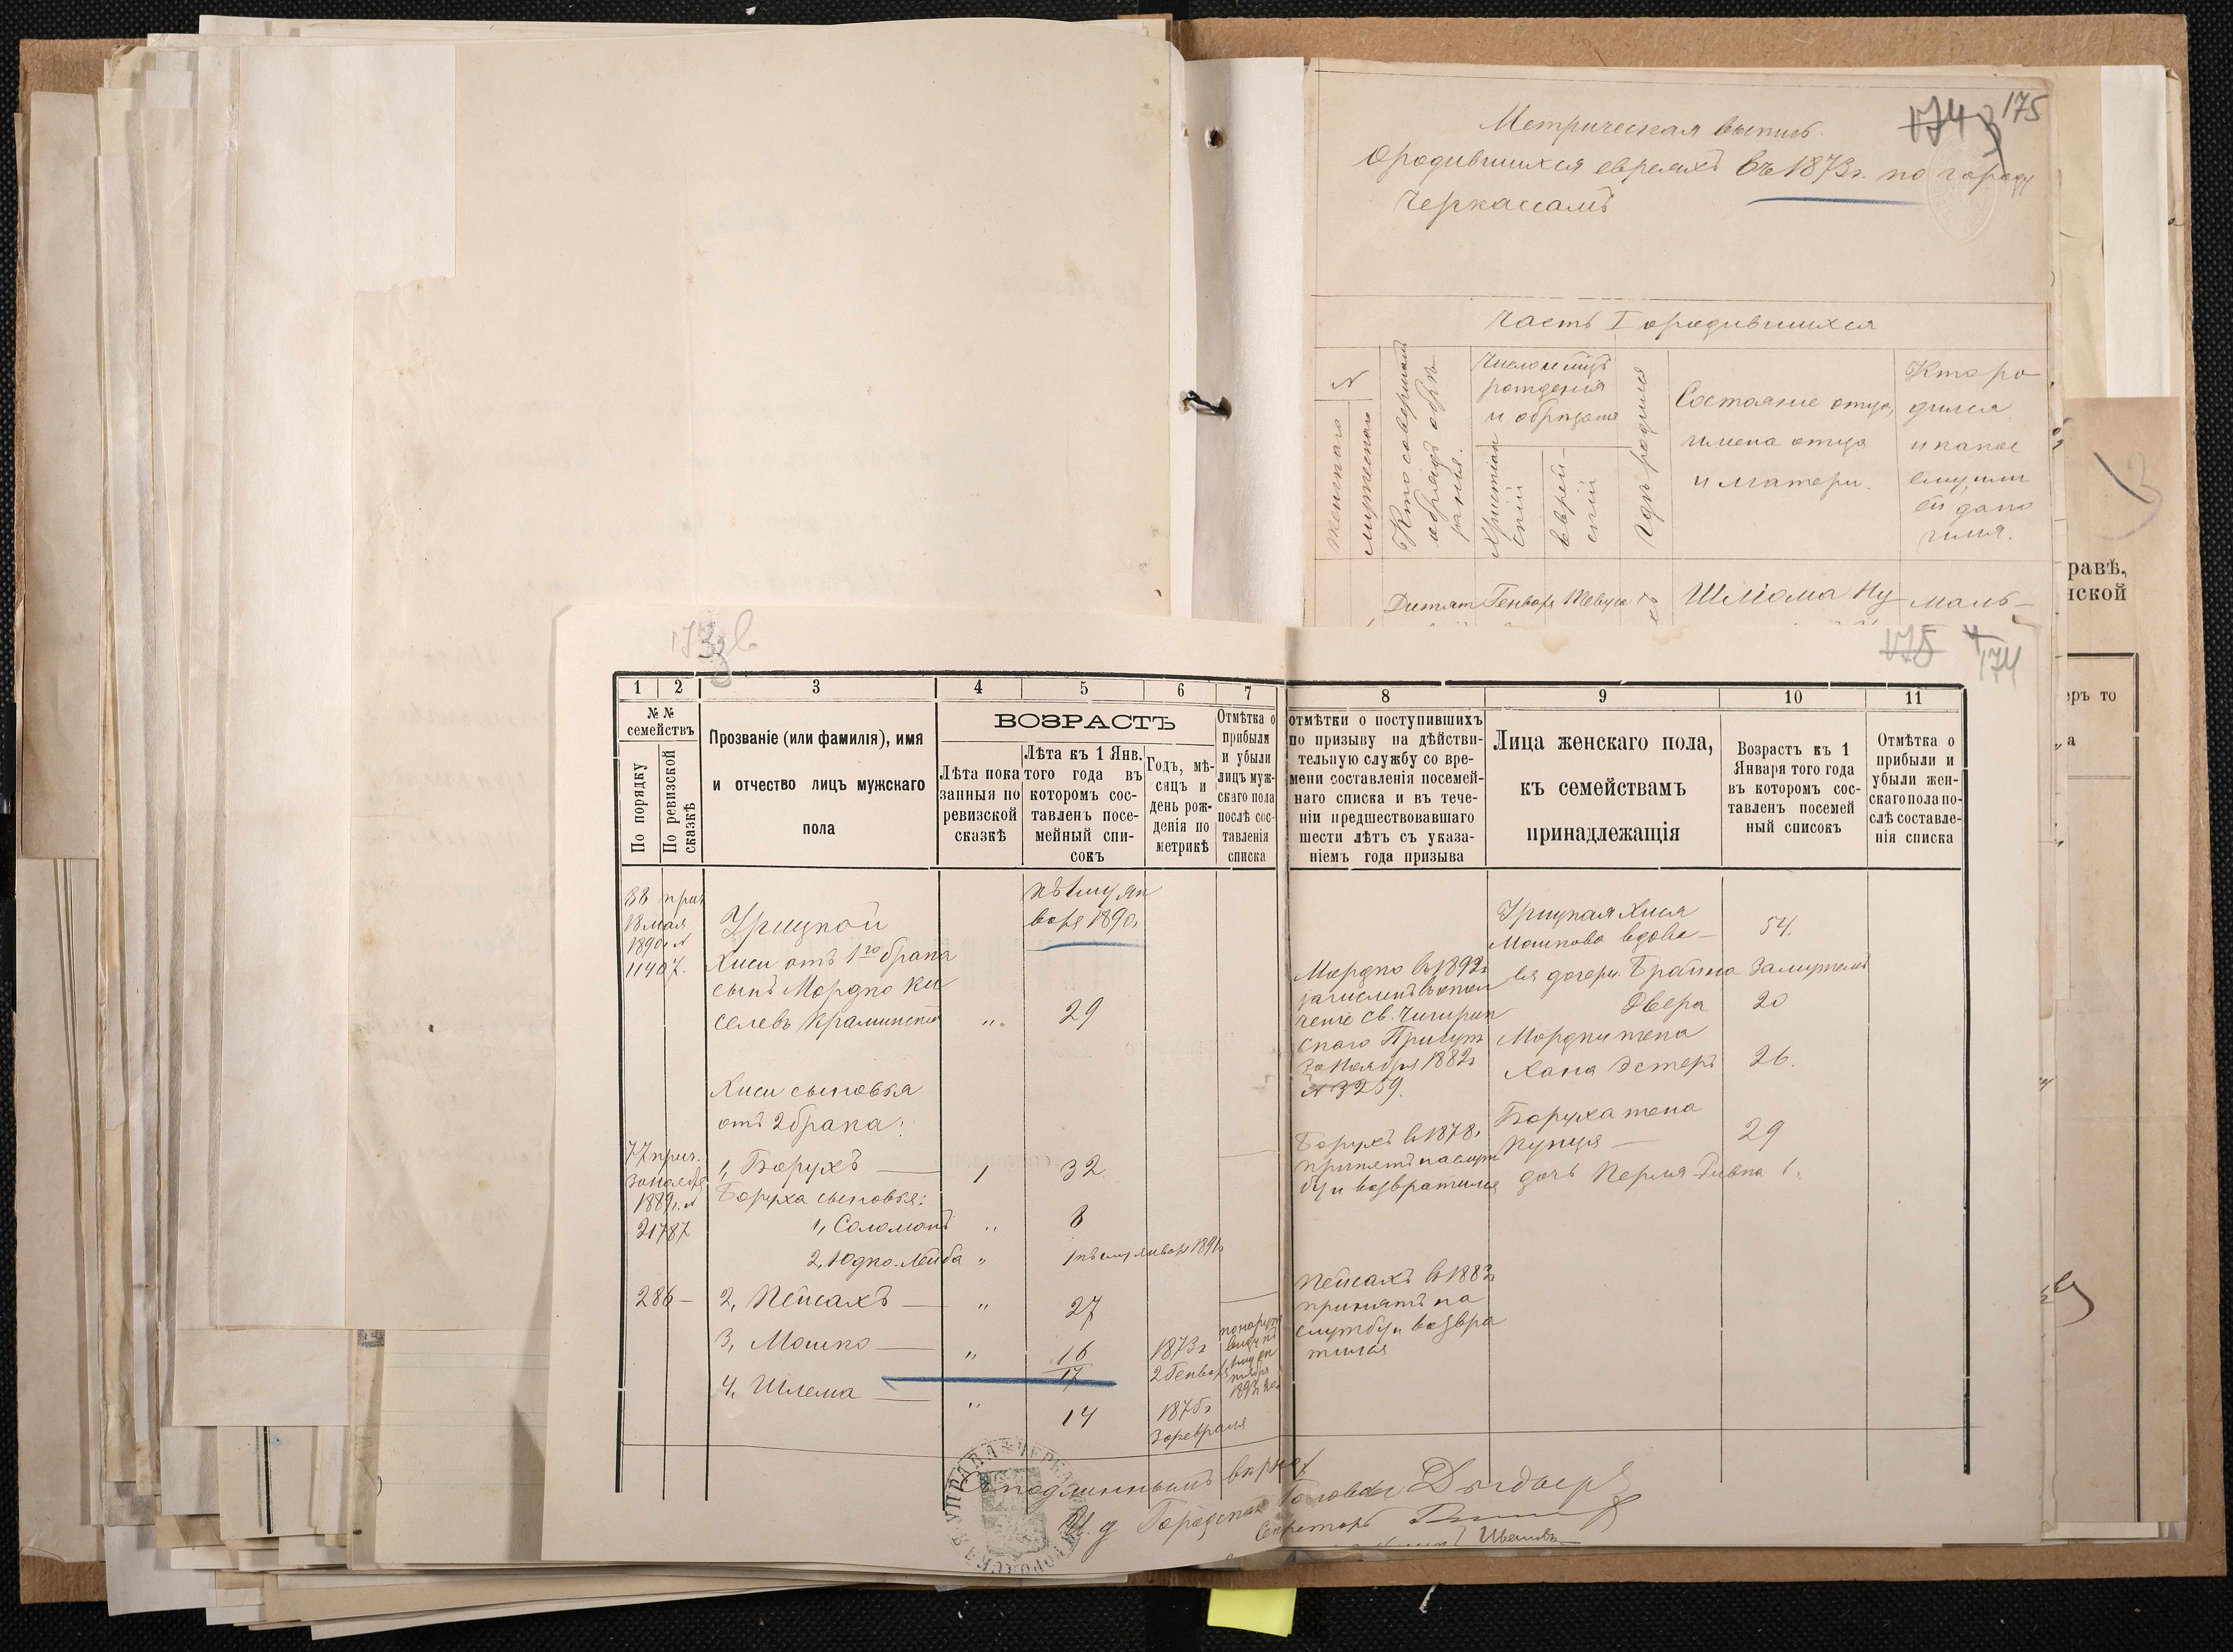 175
Метрическая выпись
о родившихся евреяхъ въ 1873 г. по городу
Черкассамъ
Часть I о родившихся
№
Женскаго
Мужескаго
Кто совершалъ
обрядъ обрѣ
занія.
Число и мѣцъ
рожденія
и обрѣзанія
Христіан
скій
Еврей-
скій
Гдѣ родился
Состояніе отца,
имена отца
и матери.
Кто ро
дился
и какое
ему, или
ей дано
имя.
Генваря
Шліома Ну
маль-
равѣ,
нской
еръ то
а
175
174
1 2 3 4 5 6 7 8 9 10 11
№ №
семействъ
По порядку
По ревизской
сказкѣ
Прозваніе (или фамилія), имя
и отчество лицъ мужскаго
пола
ВОЗРАСТЪ
Лѣта пока
занныя по
ревизской
сказкѣ
Лѣта къ 1 Янв.
того года въ
которомъ сос-
тавленъ посе-
мейный спи-
сокъ
Годъ, мѣ-
сяцъ и
день рож-
денія по
метрикѣ
Отмѣтка о
прибыли
и убыли
лицъ муж-
скаго пола
послѣ сос-
тавленія
списка
отмѣтки о поступившихъ
по призыву на дѣйстви-
тельную службу со вре-
мени составленія посемей-
наго списка и въ тече-
ніи предшествовавшаго
шести лѣтъ съ указа-
ніемъ года призыва
Лица женскаго пола,
къ семействамъ
принадлежащія
Возрастъ къ 1
Января того года
въ которомъ сос-
тавленъ посемей
ный списокъ
Отмѣтка о
прибыли и
убыли жен-
скаго пола по-
слѣ составле-
нія списка
88 прич
18 мая
1890 г. №
11407.
Урицкой
Хиси отъ 1го брака
сынъ Мордко Ки
селевъ Краминскій „ 29
къ 1му ян
варя 1890 г.
Мордко въ 1892 г
зачисленъ въ опол
ченіе св. Чигирин
скаго Присут
30 Ноября 1882 г
№ 3259.
Урицкая Хися
Мошкова вдова — 54.
ея дочери. Брайна Замужемъ
Двера 20
Мордки жена
Хана Эстеръ 26.
Хиси сыновья
отъ 2 брака:
77 прич.
30 ноября
1889 г. №
21787
1, Борухъ — 1 32
Боруха сыновья:
1, Соломонъ „ 8
2, Юдко-Лейба „ 1 къ 1му января 1891 г
Борухъ въ 1878 г.
принятъ на служ
бу и возвратился
Боруха жена
Купця — 29
дочь Перля Ривка 1.
286 — 2, Пейсахъ — „ 27
Пейсахъ въ 1883 г
принятъ на
службу и возвра
тился
3, Мошко — „ 16
17
1873 г
2 Генваря
4, Шлема — „ 14
1875 г
3 февраля
Съ подлиннымъ вѣрно:
И. д. Городскаго Головы
Секретарь
Ивановъ